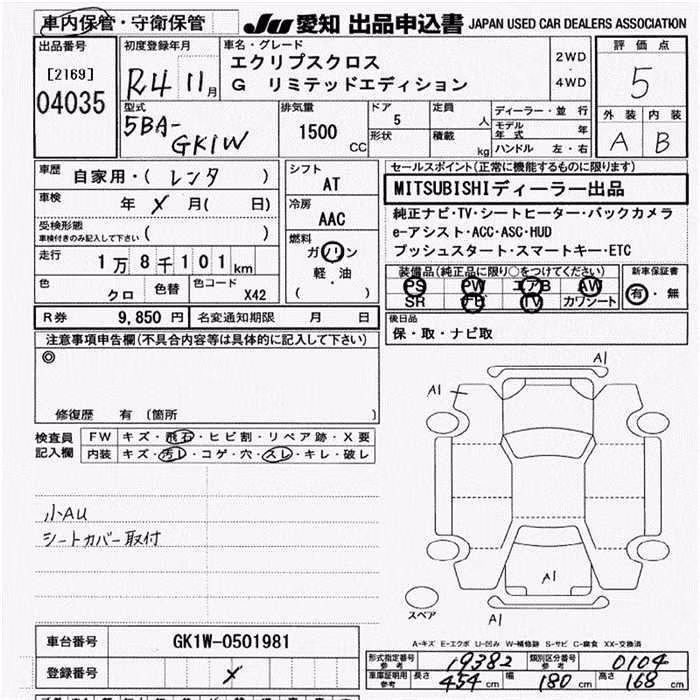 車内保管・守衛保管 JU 愛知 出品申込書 JAPAN USED CAR DEALERS ASSOCIATION
出品番号 初度登録年月 車名・グレード 評価点
[2169] R4 11月 エクリプスクロス 2WD 5
04035 G リミテッドエディション 4WD
型式 排気量 ドア 定員 ディーラー・並行 外装 内装
5BA-GK1W 1500 CC 5 人 モデル年式 年 A B
形状 積載 kg ハンドル 左・右
車歴 自家用・( レンタ ) シフト セールスポイント(正常に機能するものに限ります)
車検 年 X 月( 日) AT MITSUBISHIディーラー出品
受検形態 冷房 純正ナビ・TV・シートヒーター・バックカメラ
車検付きのみ記入して下さい ( ) AAC e-アシスト・ACC・ASC・HUD
走行 1万8千101km 燃料 プッシュスタート・スマートキー・ETC
ガソリン 装備品(純正品に限り○をつけてください) 新車保証書
色 クロ 色替 色コード X42 軽・油 PS PW エアB AW 有・無
( ) SR ナビ TV カワシート
R券 9,850円 名変通知期限 月 日 後日品
注意事項申告欄(不具合内容等は具体的に記入して下さい) 保・取・ナビ取
◎
修復歴 有 〔箇所 〕
検査員 FW キズ・飛石・ヒビ割・リペア跡・X要
記入欄 内装 キズ・汚レ・コゲ・穴・スレ・キレ・破レ
A1
A1
小AU
シートカバー取付
A1
スペア A1
車台番号 GK1W-0501981 A-キズ E-エクボ U-凹み W-補修跡 S-サビ C-腐食 XX-交換済
登録番号 X 形式指定番号 参考 19382 類別区分番号 参考 0104
車庫証明用 参考 長さ 454 cm 幅 180 cm 高さ 168 cm